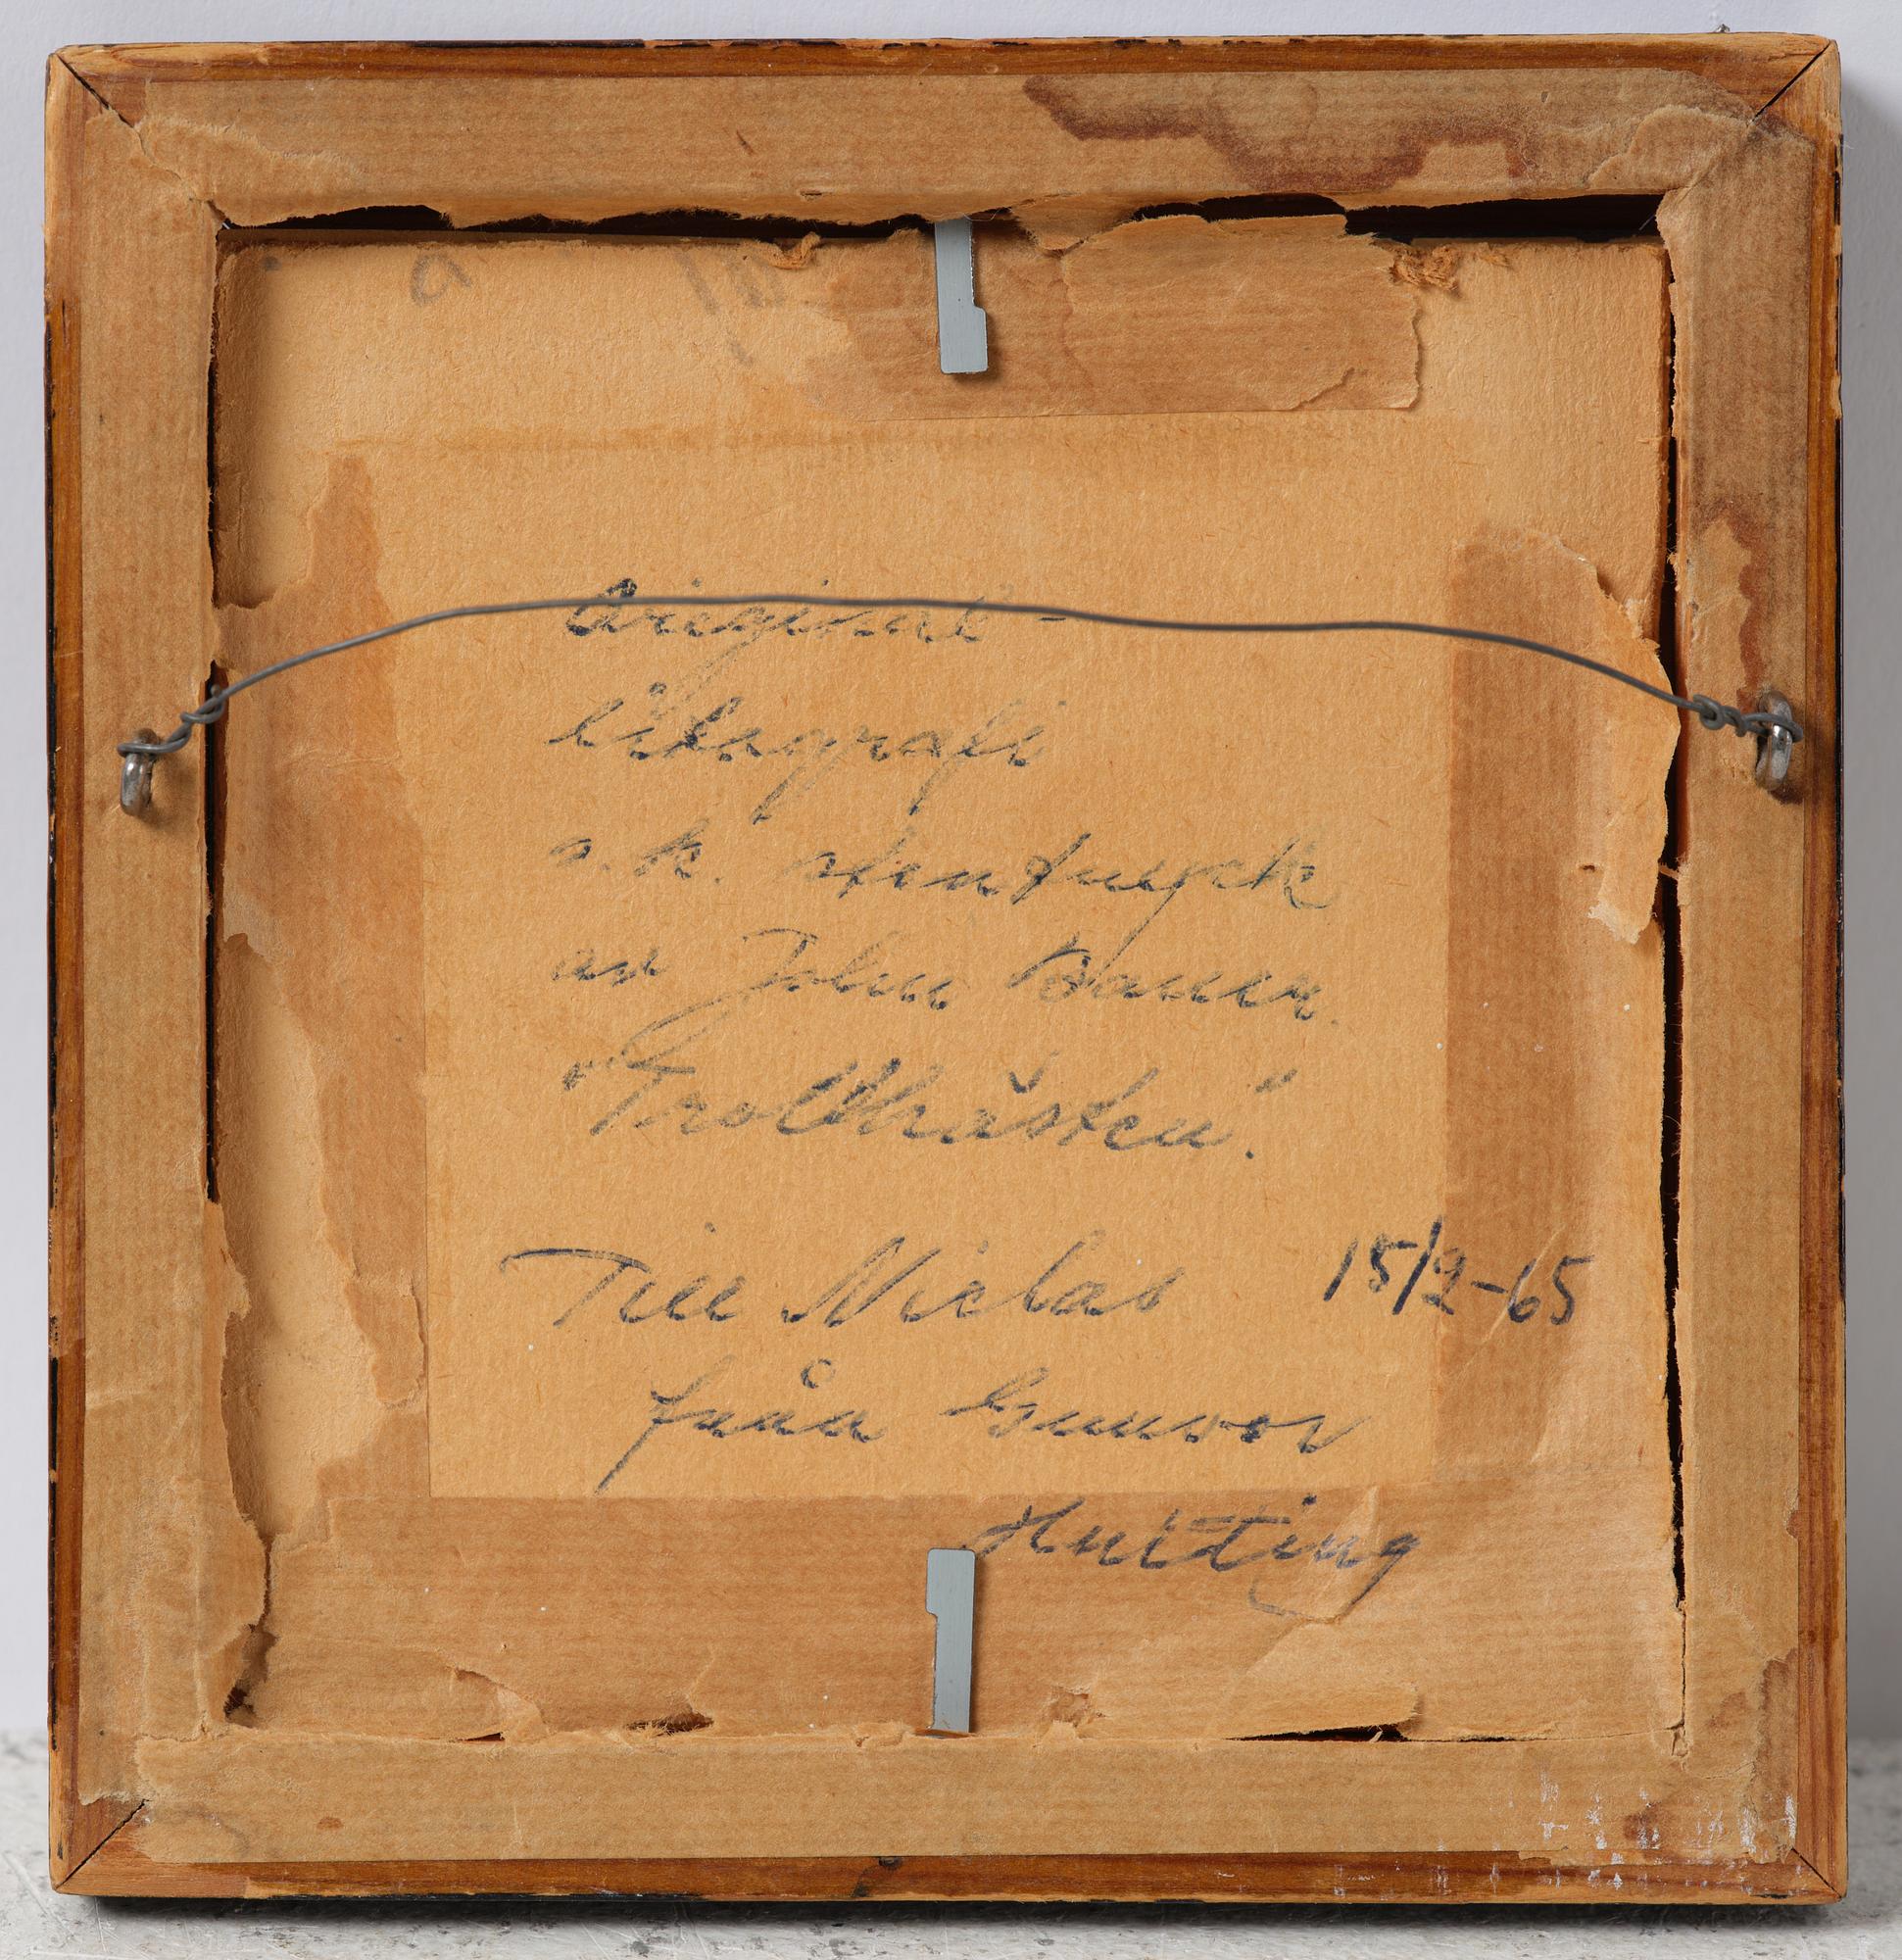 Original-
litografi
s.k. stentryck
av John Bauer.
"Trollhästen".
Till Niclas 15/2-65
från Gunvor
Hulting